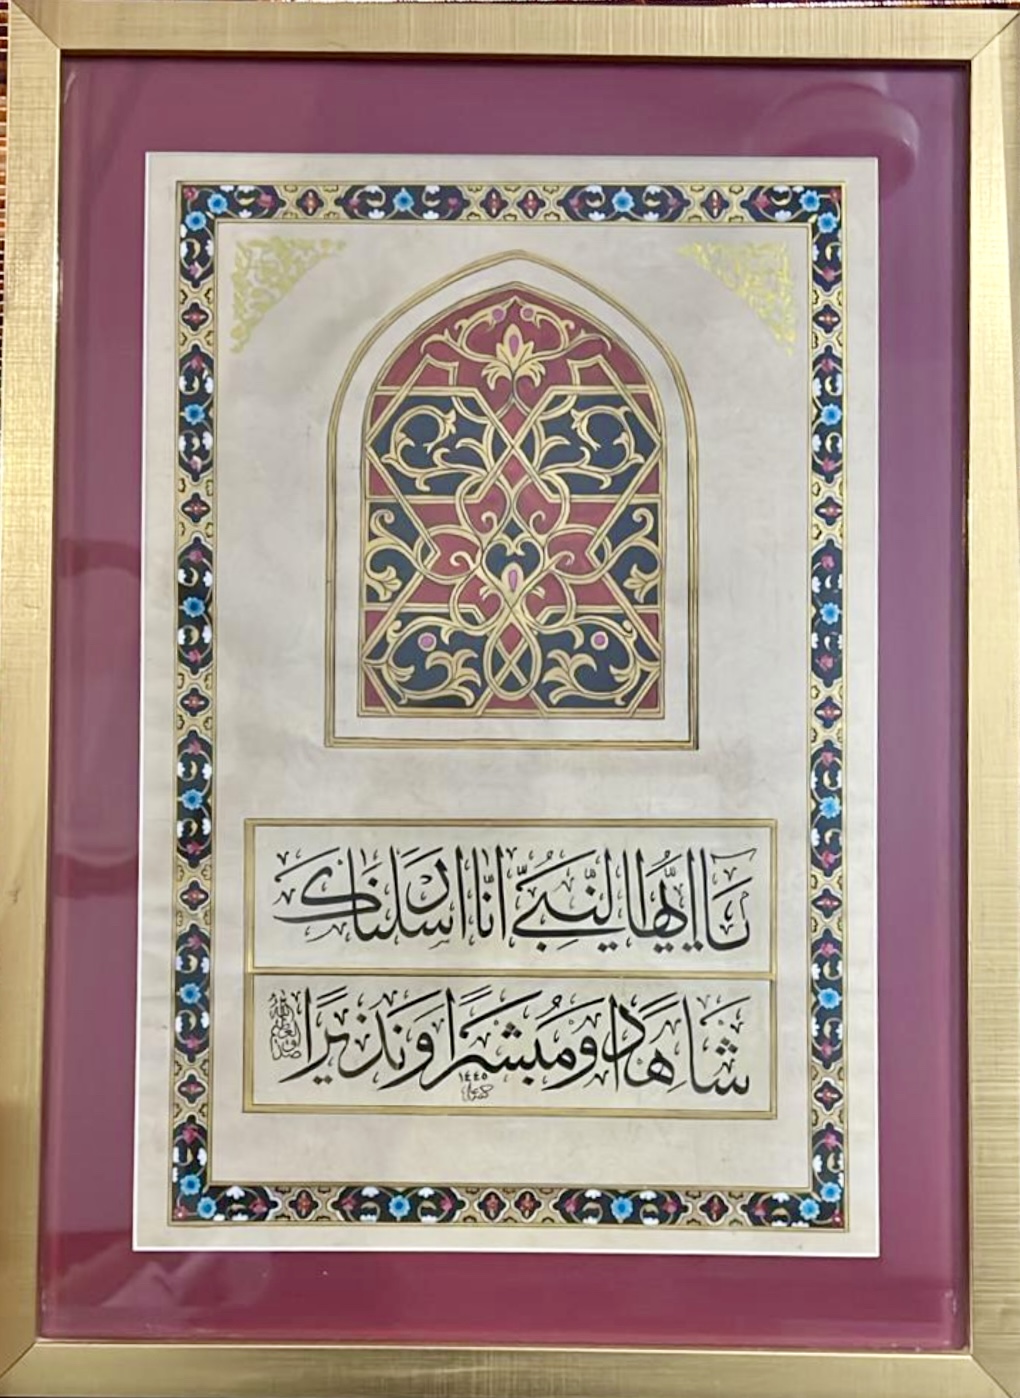 يَا اَيُّهَا النَّبِيُّ اِنَّا اَرْسَلْنَاكَ
شَاهِدًا وَمُبَشِّرًا وَنَذِيرًا
صدق الله العظيم
١٤٤٥